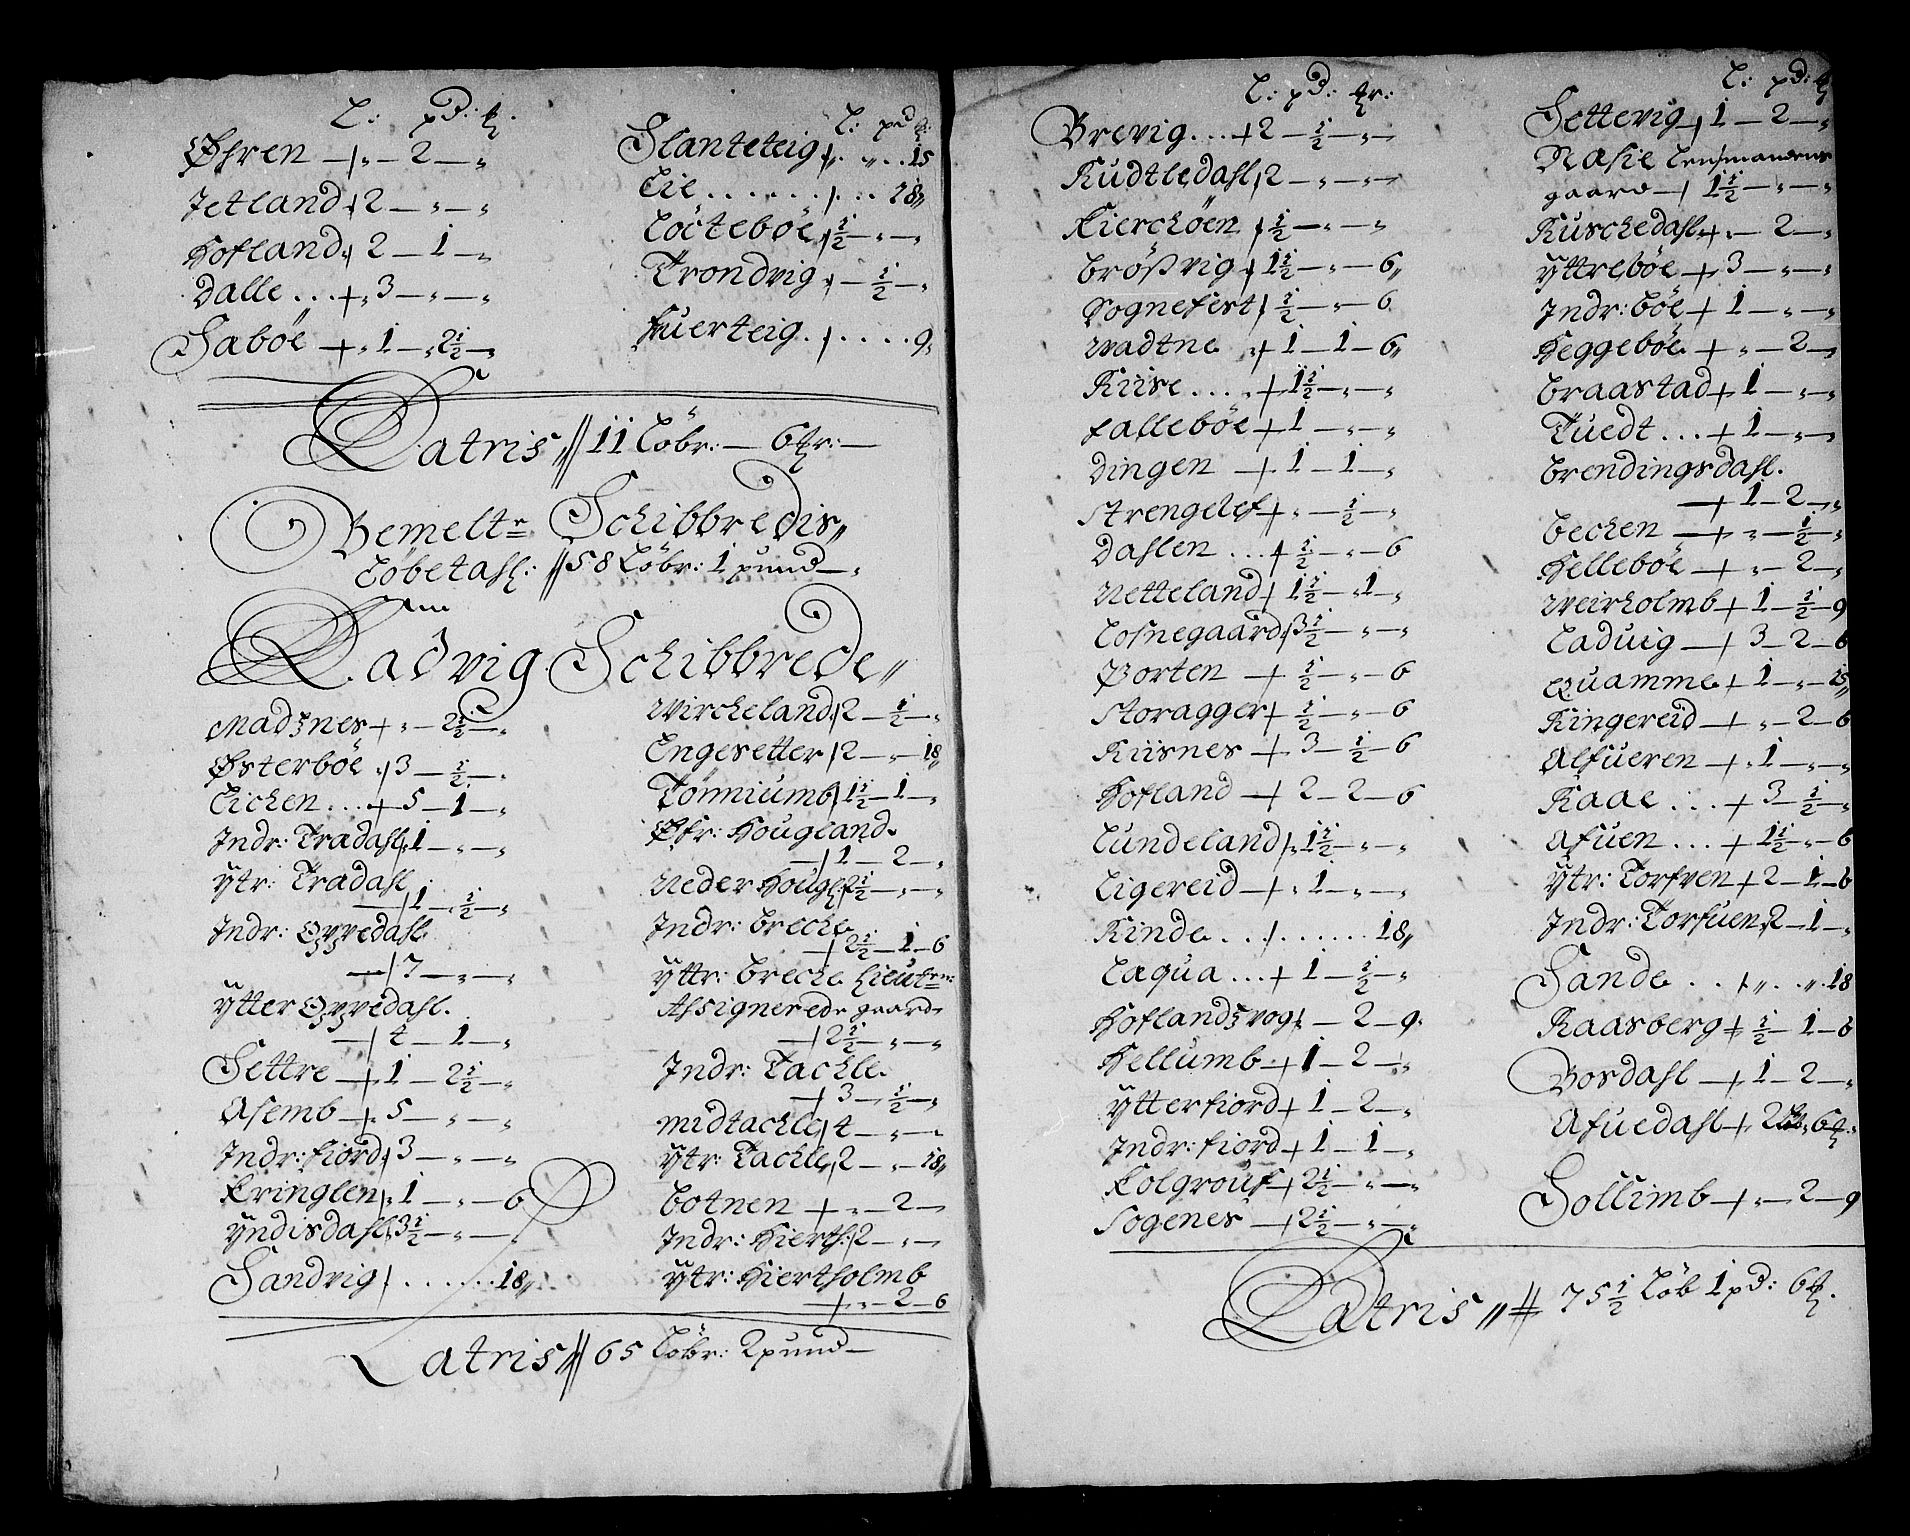 L: pd: ꝶ.
Øhren —+„— 2 —„
Jetland + 2 —„—„
Hofland + 2 — 1 —„
Dalle ...+„ 3 —„—„
Sæböe —+„ 1 —„2½—„
L: pd ꝶ:
Slanteteig +„. „. .15
Lie . . . . . . . / . . . 18„
Löcteböe + ½ —„—„
Trondvig + — ½ —„
Huerteig . / . . . . 9„
Latris // 11 Löbr: — 6 ꝶr: —
Bemelte Schibbredis„
Löbetahl: // 58 Löbr: 1 pund —„
Ladvig Schibbrede„
Madznes +„— 2½ —„
Østerböe + 3 — ½ —„
Eichen ...+ 5 — 1 —„
Indr: Tradahl + 1 —„—„
Ytr: Tradahl
—+ 1 — ½ —„
Indr: Oppedahl
—+ 7 —„—„
Ytter Oppedahl.
—+ 4 — 1 —„
Settre —+ 1 — 2½ —„
Asemb —+ 5 —„—„
Indr: fiord + 3 —„—„
Kringlen + 1 —„— 6
Yndisdahl + 3½ —„—„
Sandvig / . . . . . . . 18„
Wircheland + 2 — ½ —„
Engesetter / 2 —„— 18„
Tönniumb + 1½ — 1 —„
Øfr: Hougland.
—+ 1 — 2 —„
Neder Hougl + 2½ —„—„
Indr: Breche
—+ 2½ — 1 — 6
Yttr: Breche Lieutn:
Assignerede gaard
—+ 2½ —„—„
Indr: Tachle.
—+ 3 — ½ —„
Midtachle + 4 —„—„
Ytr: Tachle + 2 —„— 18„
Botnen —+„— 2 —
Indr: Hierth: / 2 —„—„
Ytr: Hiertholmb
—+„— 2 — 6
Latris // 65 Löbr: 2 pund —
L: pd: ꝶr:
Brevig...+ 2 — ½ —„—
Kudtledahl + 2 —„—„
Kierchöen + ½ —„—„
Brößvig + 1½ —„— 6„
Sognefest + ½ —„— 6
Wadtne „+ 1 — 1 — 6„
Riise ....+ 1½ —„—„
Falleböe + 1 —„—„
Dingen —+ 1 — 1 —„
Strengelef +„— ½ —„
Dahlen ...+ ½ —„— 6
Netteland + 1½ —„1 —„
Losnegaard + 3½ —„—„
Porten —+ ½ —„— 6
Storagger + ½ —„— 6
Riisnes —+ 3 — ½ — 6
Hofland —+ 2 — 2 — 6
Lundeland +„1½ —„—„
Ligereid —+„ 1 —„—„
Rinde . . . / . . . . . . 18„
Læqua ...+ 1 — ½ —„
Hoflandzvog + — 2 — 9.
Hellumb + 1 — 2 —„
Ytterfiord + 1 — 2 —„
Indr: fiord + 1 — 1 —„
Kolgrouf + 2½ —„—„
Sogenes —+ 2½ —„—„
L: pd: ꝶ
Settevig + 1 — 2 —„
Risie Lensmandens
gaard —+ 1½ —„—„
Kuschedahl +„— 2 —„
Yttreböe + 3 —„—„
Indr: böe + 1 —„—„
Heggeböe +„— 2 —„
Braastad + 1 —„—„
Tuedt ...+ 1 —„—„
Brendingsdahl.
—+ 1 — 2 —„
Bechen —+„— ½ —„
Helleböe —+„— 2 —„
Weirholmb + 1 — ½ — 9
Laduig —+ 3 — 2 — 6
Quamme + 1 —„— 15„
Ringereid —+„— 2 — 6
Alfueren —+„ 1 —„—„
Kaae ....+ 3 — ½ —„
Afuen ...+ 1½ —„— 6
Ytr: Torfven + 2 — 1 — 6
Indr: Torfuen + 2 — 1 —„
Sande . . / „. . „.18
Raasberg + ½ — 1 — 6
Bosdahl —+ 1 — 2 —„
Afuedahl +„ 2 6 ꝶ:
Sollimb —+„— 2 — 9
Latris„ // 75½ Löb 1 pd: 6 ꝶ.